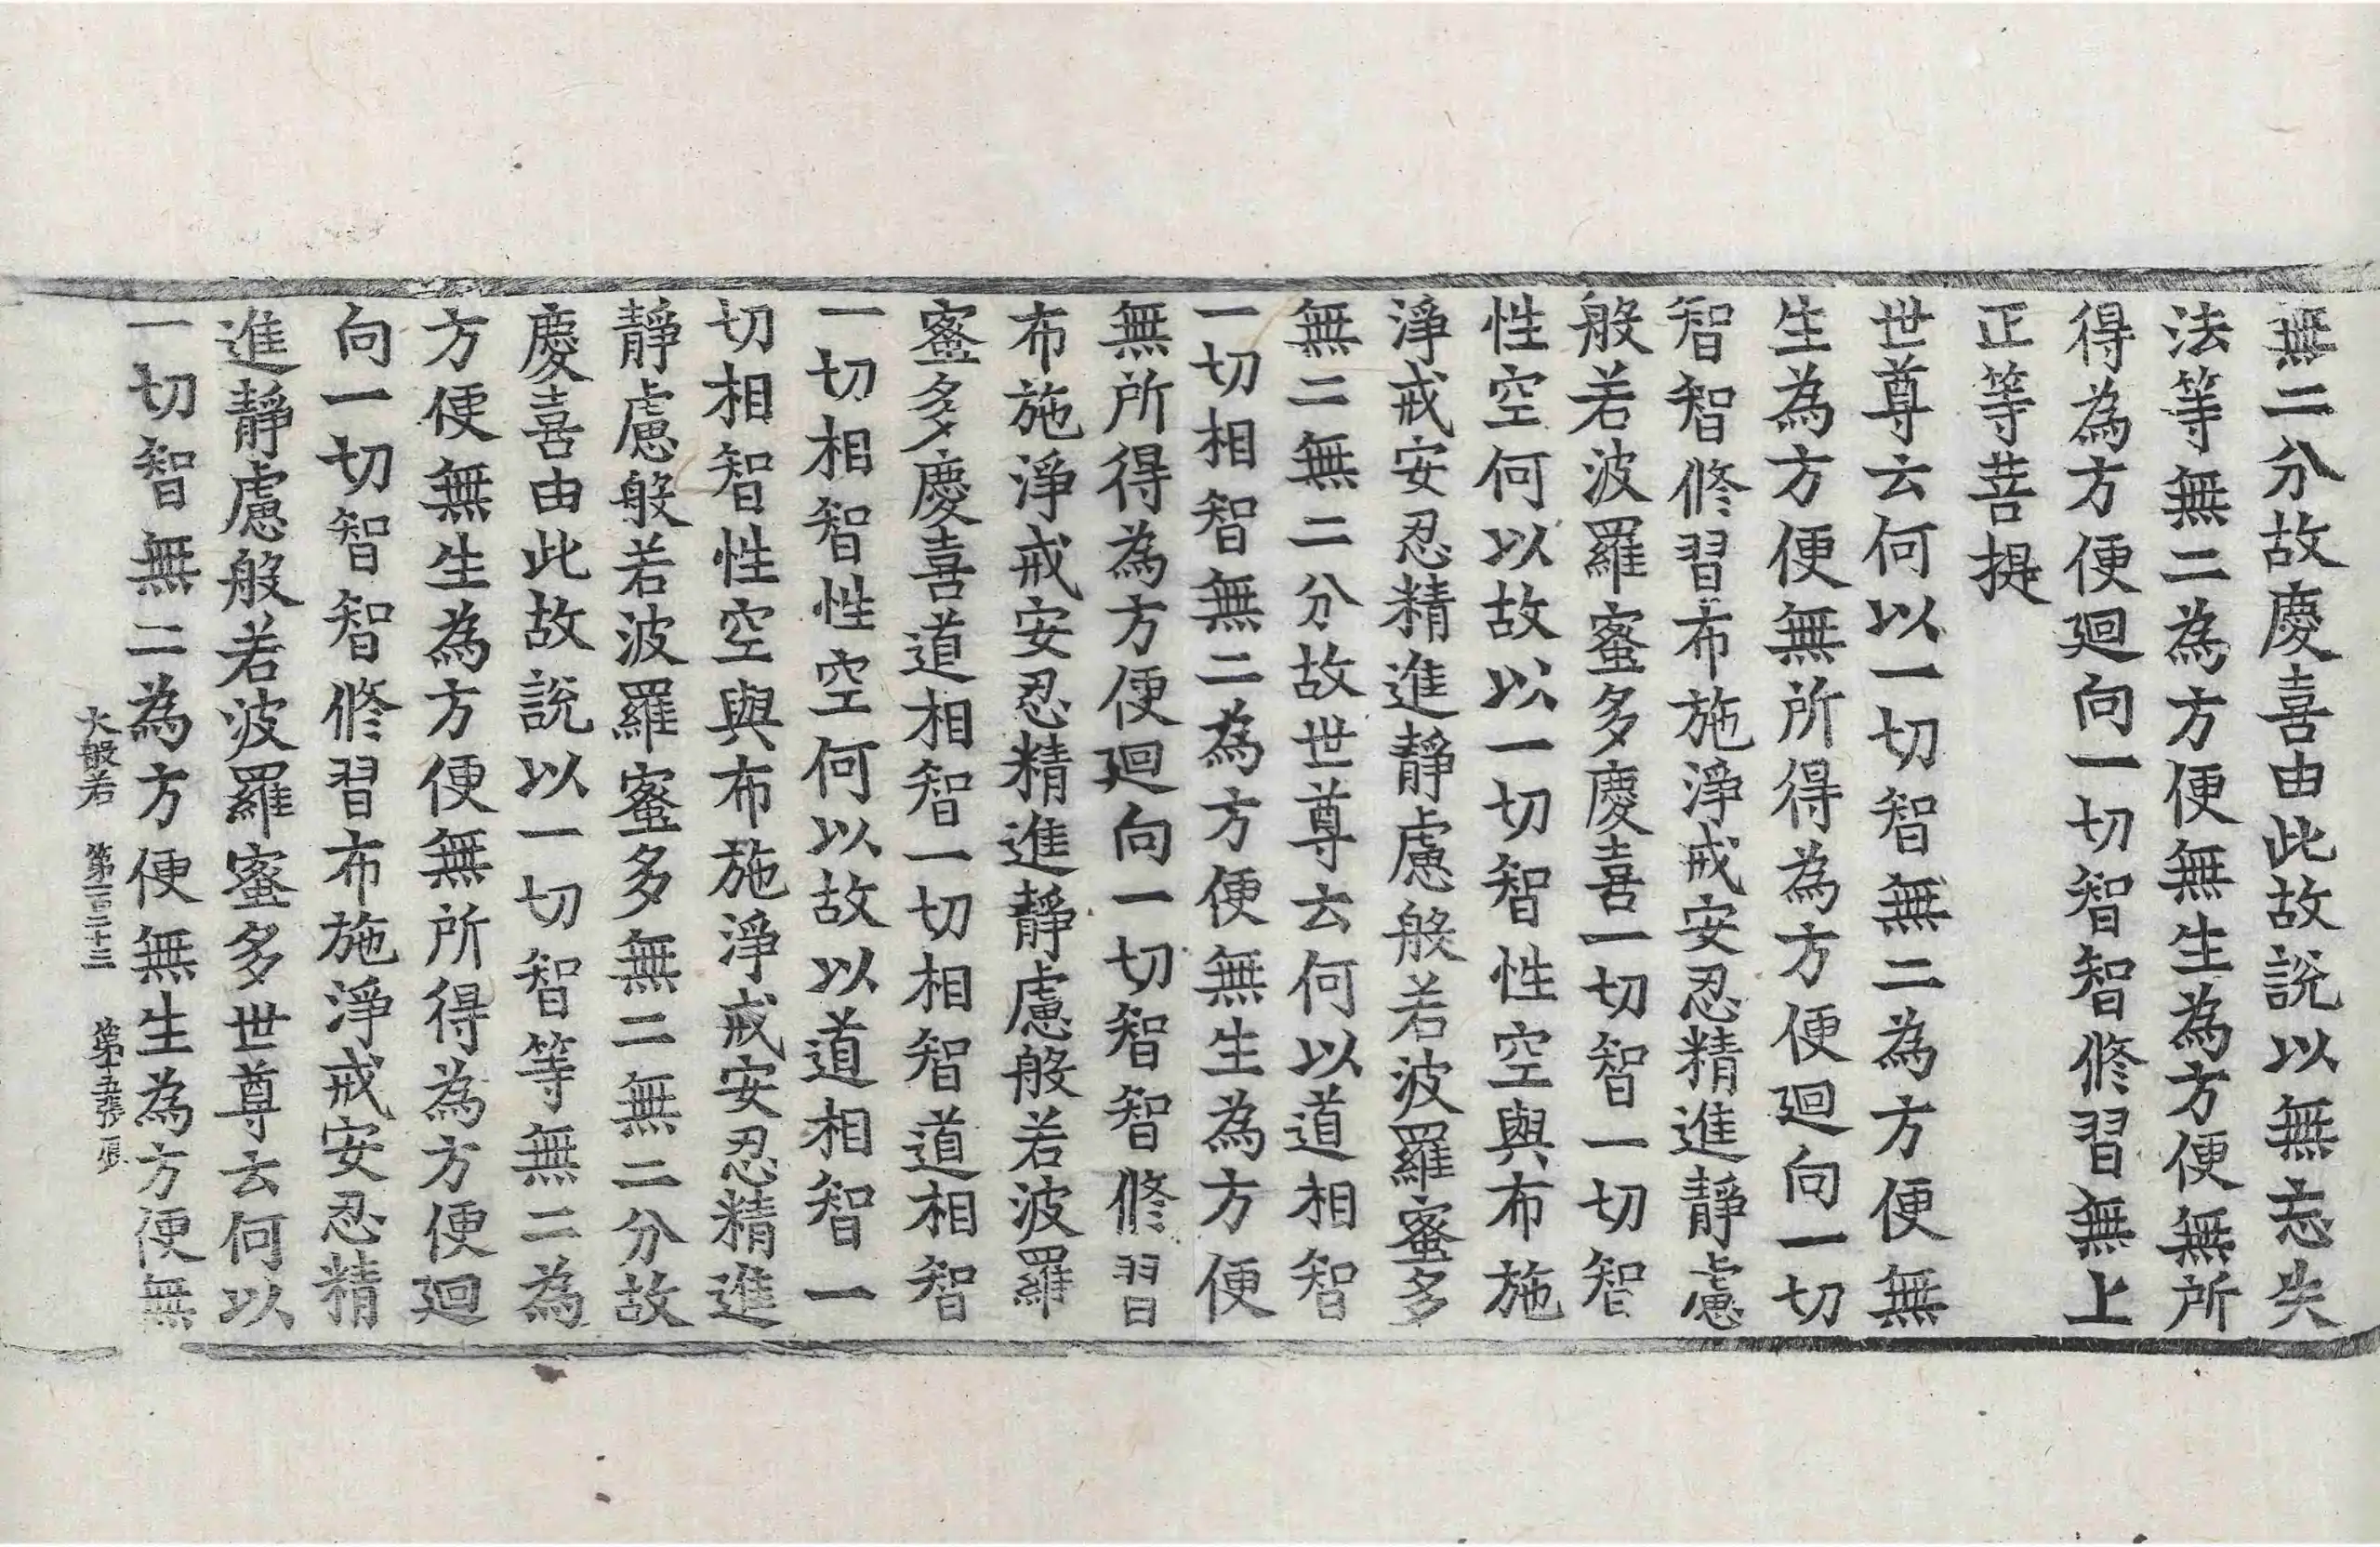 無二分故慶喜由此故說以無忘失
法等無二為方便無生為方便無所
得為方便廻向一切智智修習無上
正等菩提
世尊云何以一切智無二為方便無
生為方便無所得為方便廻向一切
智智修習布施淨戒安忍精進靜慮
般若波羅蜜多慶喜一切智一切智
性空何以故以一切智性空與布施
淨戒安忍精進靜慮般若波羅蜜多
無二無二分故世尊云何以道相智
一切相智無二為方便無生為方便
無所得為方便廻向一切智智修習
布施淨戒安忍精進靜慮般若波羅
蜜多慶喜道相智一切相智道相智
一切相智性空何以故以道相智一
切相智性空與布施淨戒安忍精進
靜慮般若波羅蜜多無二無二分故
慶喜由此故說以一切智等無二為
方便無生為方便無所得為方便廻
向一切智智修習布施淨戒安忍精
進靜慮般若波羅蜜多世尊云何以
一切智無二為方便無生為方便無
大般若 第一百二十三 第十五張